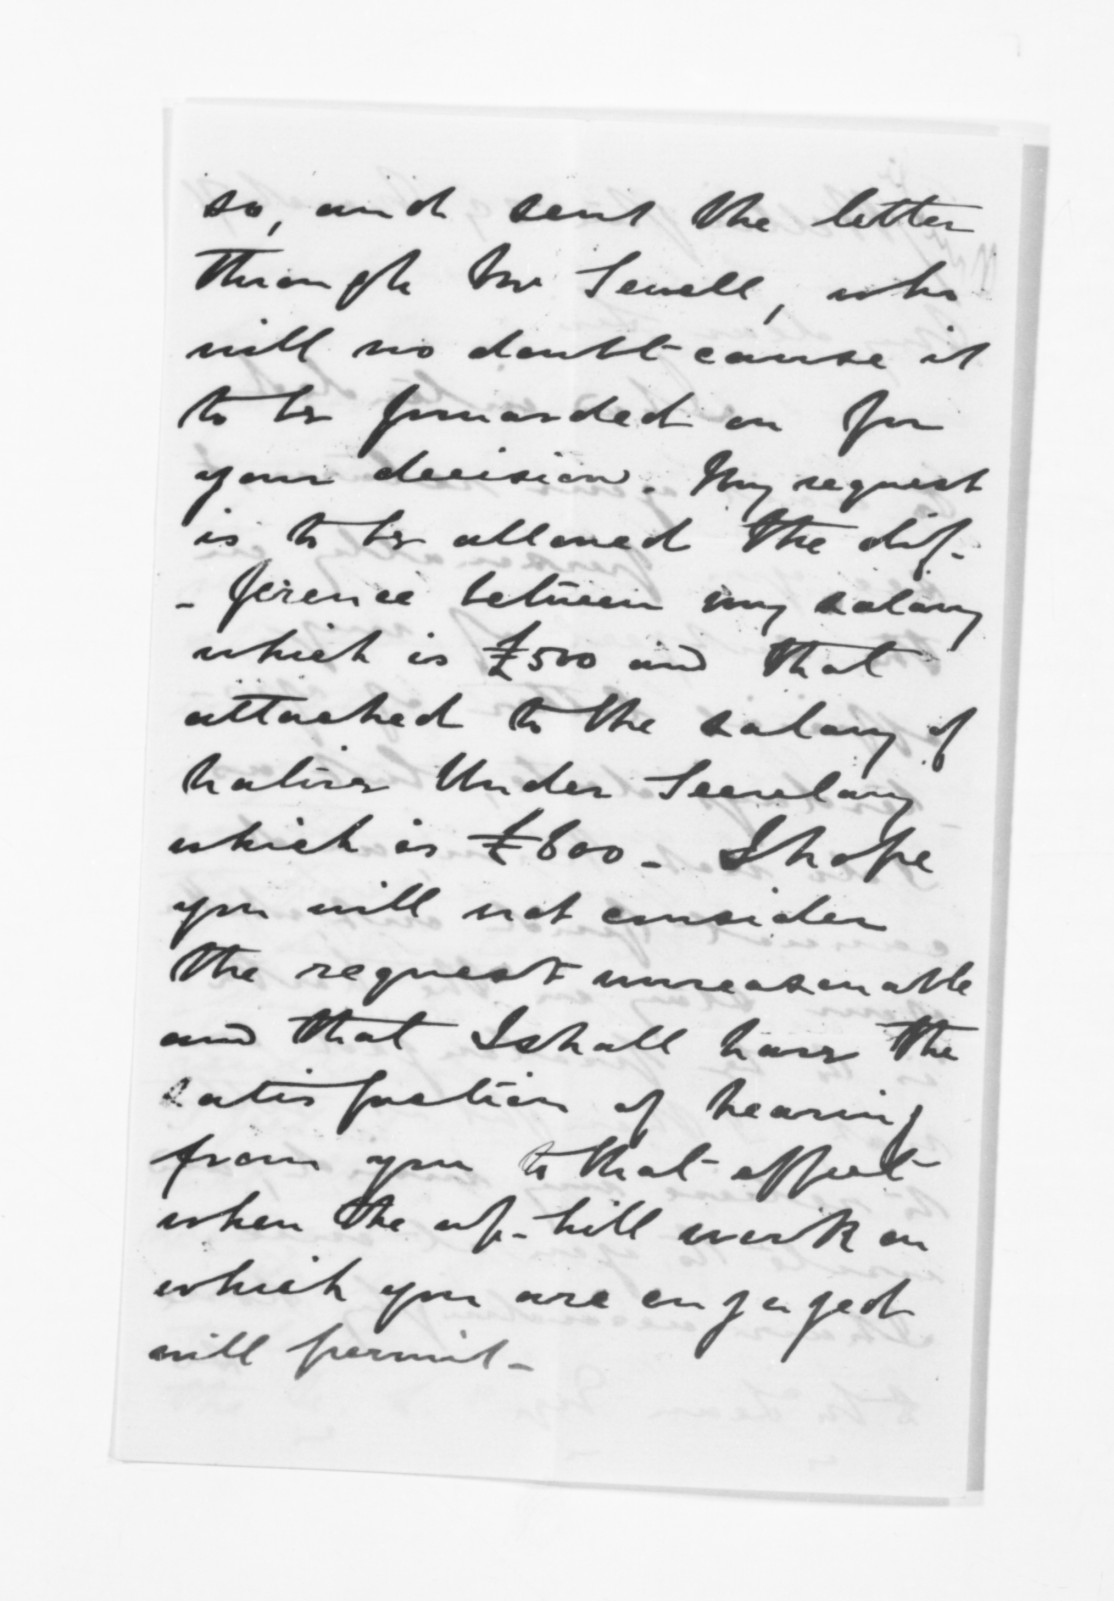 so, and sent the letter
through Mr Sewell, who
will no doubt cause it
to be forwarded on for
your decision. My request
is to be allowed the dif-
-ference between my salary
which is £500 and that
attached to the salary of
Native Under Secretary
which is £600 - I hope
you will not consider
the request unreasonable
and that I shall have the
satisfaction of hearing
from you to that effect
when the up-hill work on
which you are engaged
will permit -